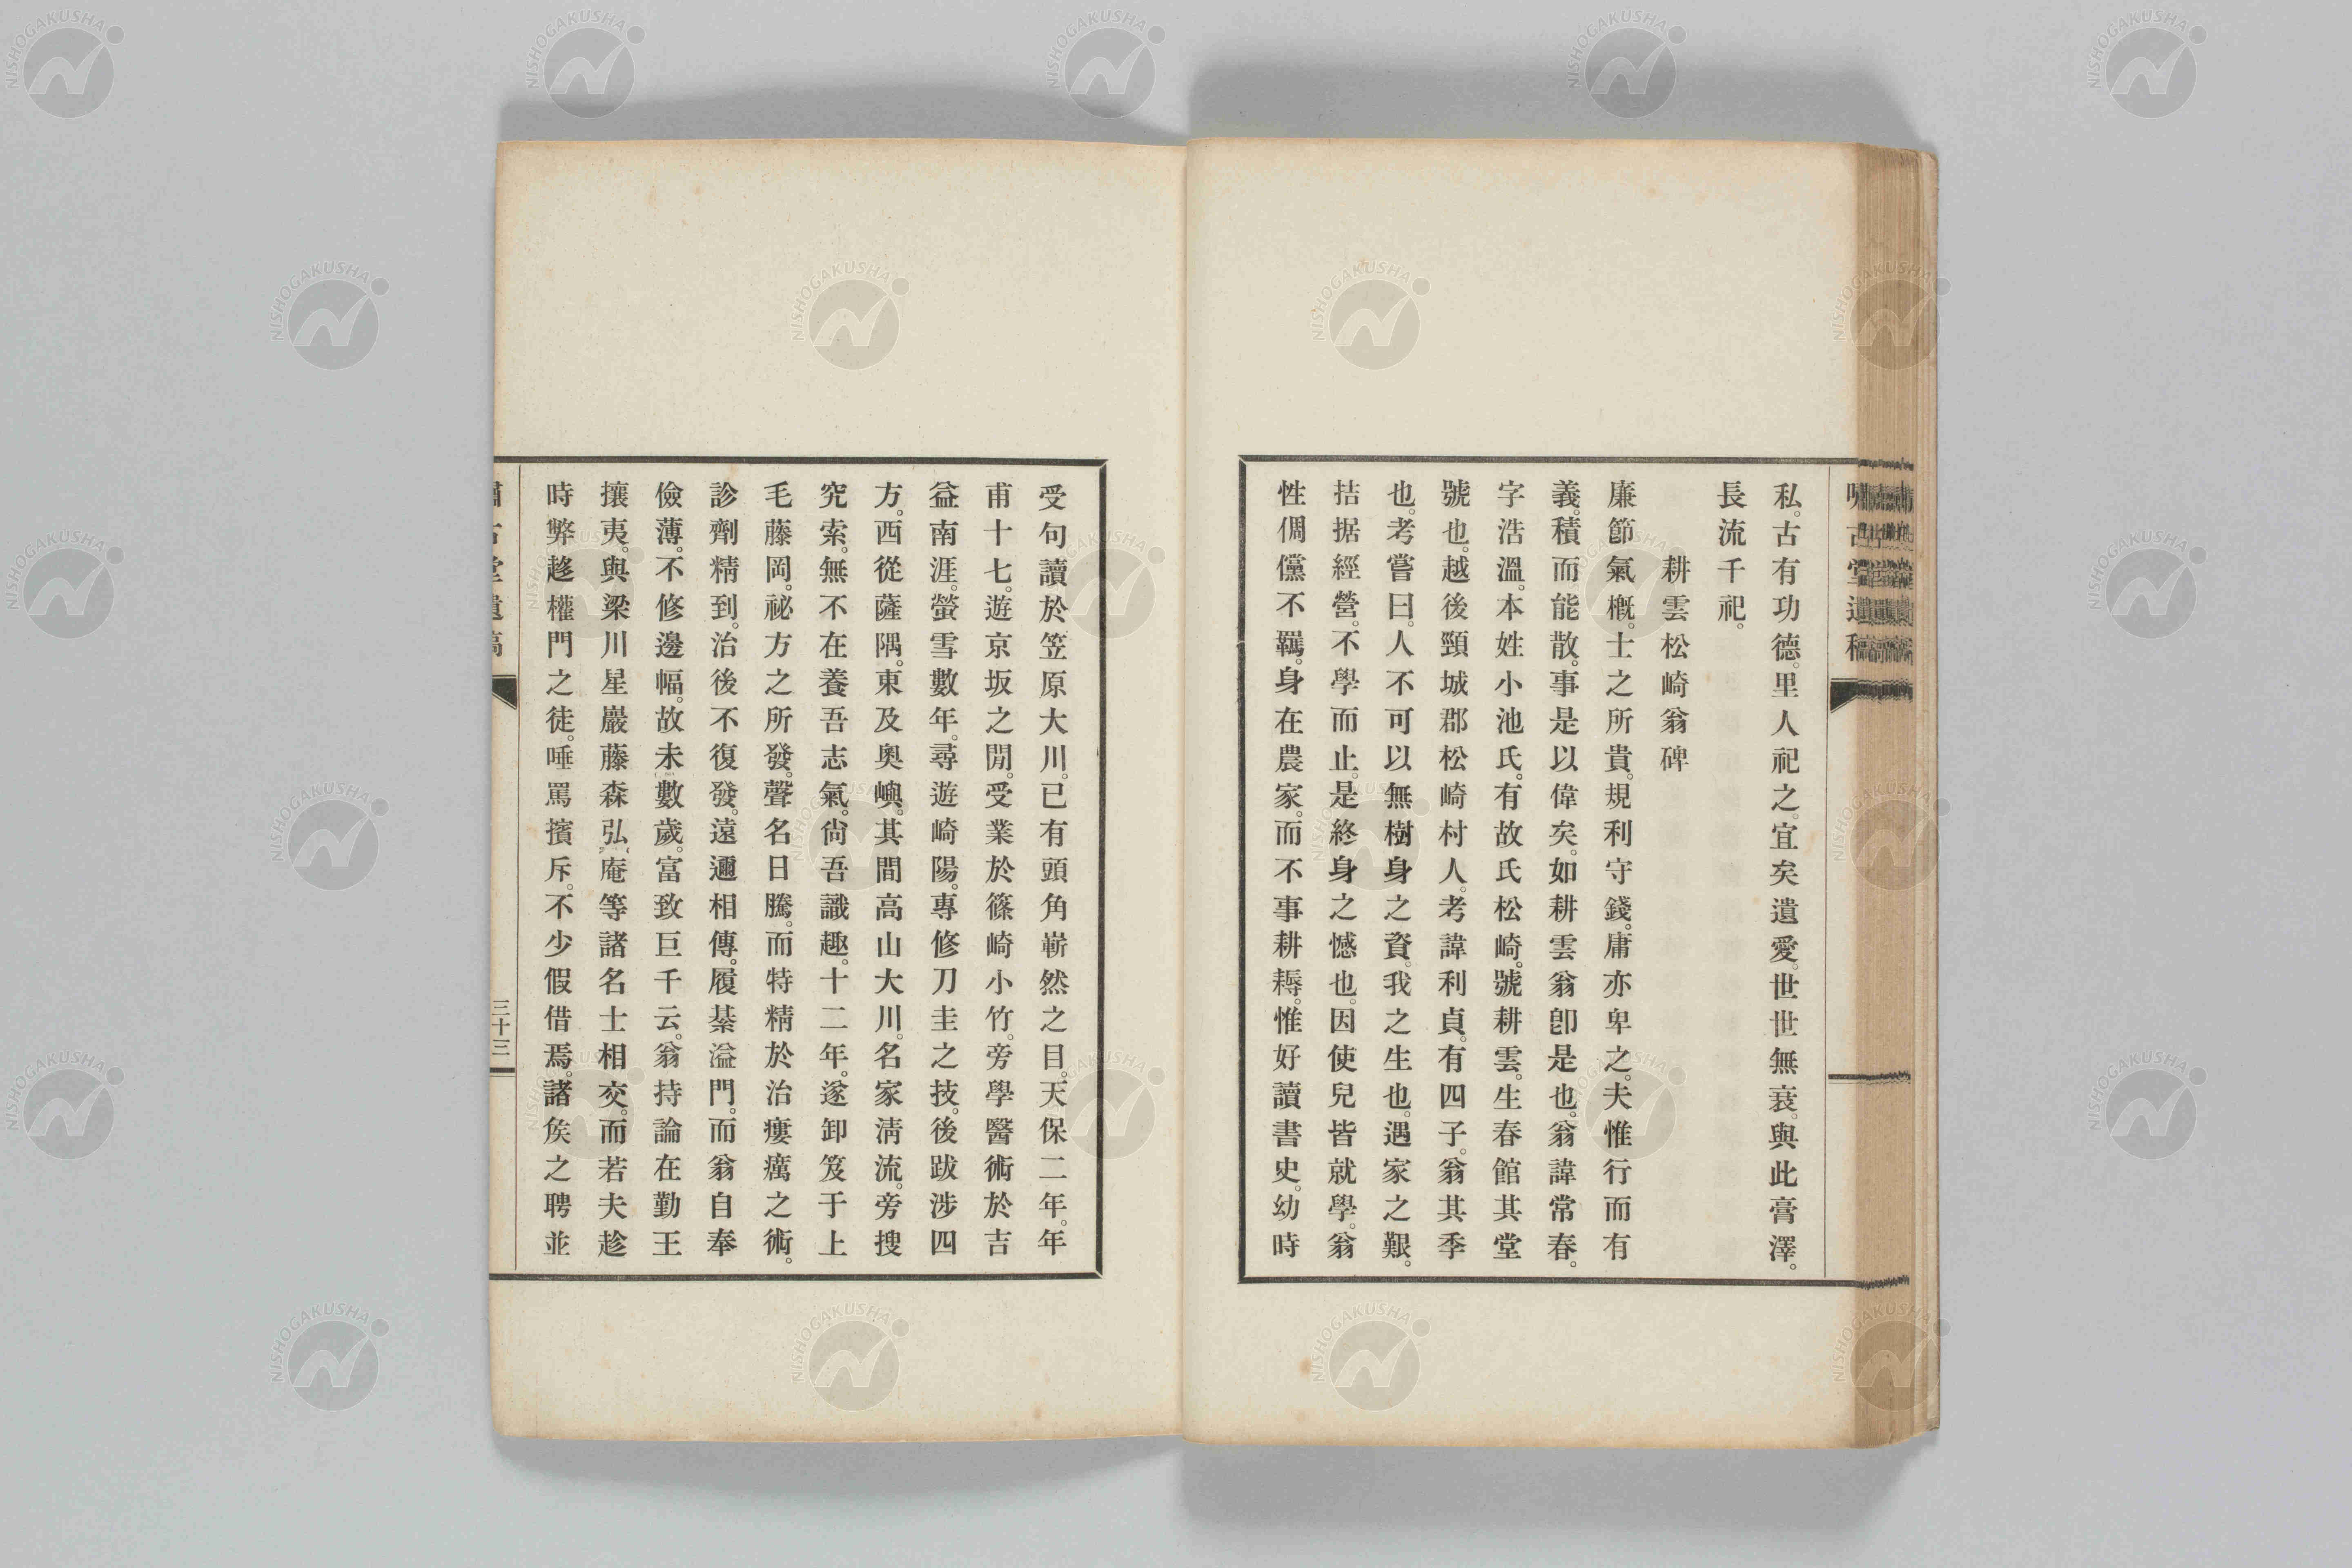 私。古有功德。里人祀之。宜矣遺愛。世世無衰。與此膏澤。
長流千祀。
耕雲松崎翁碑
廉節氣概。士之所貴。規利守錢。庸亦卑之。夫惟行而有
義。積而能散。事是以偉矣。如耕雲翁卽是也。翁諱常春。
字浩溫。本姓小池氏。有故氏松崎。號耕雲。生春館其堂
號也。越後頸城郡松崎村人。考諱利貞。有四子。翁其季
也。考嘗曰。人不可以無樹身之資。我之生也。遇家之艱。
拮据經營。不學而止。是終身之憾也。因使兒皆就學。翁
性倜儻不羈。身在農家。而不事耕耨。惟好讀書史。幼時
受句讀於笠原大川。已有頭角嶄然之目。天保二年。年
甫十七。遊京坂之閒。受業於篠崎小竹。旁學醫術於吉
益南涯。螢雪數年。尋遊崎陽。專修刀圭之技。後跋涉四
方。西從薩隅。東及奧嶼。其間高山大川。名家淸流。旁搜
究索。無不在養吾志氣。尙吾識趣。十二年。遂卸笈于上
毛藤岡。祕方之所發。聲名日騰。而特精於治瘻癘之術。
診劑精到。治後不復發。遠邇相傳。履綦溢門。而翁自奉
儉薄。不修邊幅。故未數歲。富致巨千云。翁持論在勤王
攘夷。與梁川星巖藤森弘庵等諸名士相交。而若夫趁
時弊趍權門之徒。唾罵擯斥。不少假借焉。諸矦之聘並
嘯古堂遺稿
三十三
NISHOGAKUSHA